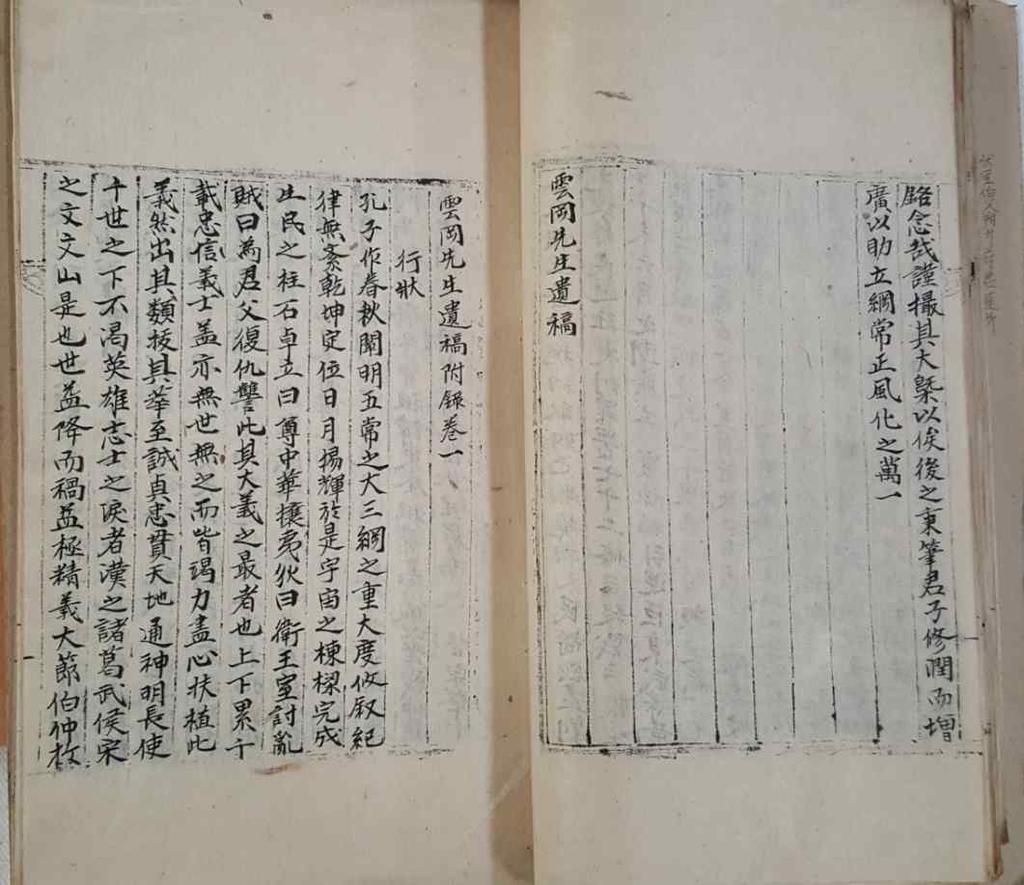 銘念哉謹撮其大槩以俟後之秉筆君子修潤而增
廣以助立綱常正風化之萬一
雲岡先生遺稿
雲岡先生遺稿附錄卷一
行狀
孔子作春秋闡明五常之大三綱之重大度攸叙紀
律無紊乾坤定位日月揚輝於是宇宙之棟樑完成
生民之柱石卓立曰尊中華攘夷狄曰衛王室討亂
賊曰為君父復仇讐此其大義之最者也上下累千
載忠信義士盖亦無世無之而皆竭力盡心扶植此
義然出其類拔其萃至誠貞忠貫天地通神明長使
千世之下不渴英雄志士之淚者漢之諸葛武侯宋
之文文山是也世益降而禍益極精義大節伯仲於